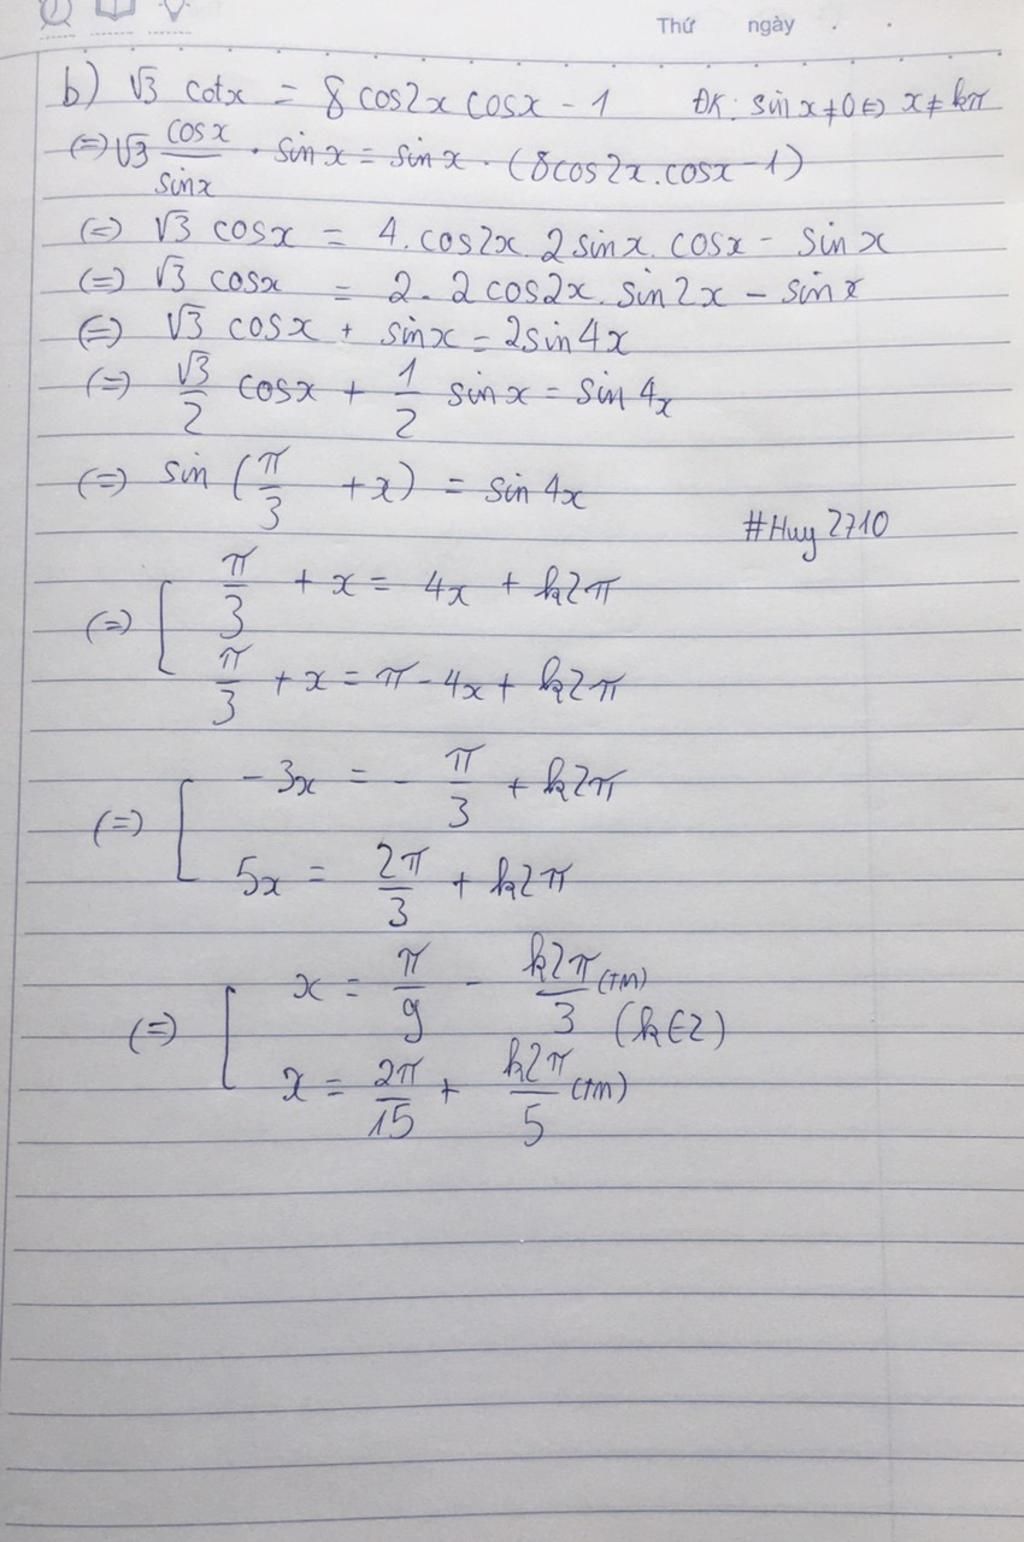 Thứ ngày . .
b) √3 cotx = 8 cos2x cosx - 1 ĐK: sin x ≠ 0 (=) x ≠ kπ
(=) √3 cosx/sinx . sin x = sin x . (8cos2x.cosx - 1)
(=) √3 cosx = 4.cos2x.2sinx.cosx - sin x
(=) √3 cosx = 2.2cos2x.sin2x - sin x
(=) √3 cosx + sinx = 2sin4x
(=) √3/2 cosx + 1/2 sin x = sin 4x
(=) sin (π/3 + x) = sin 4x
#Huy 2710
(=) [ π/3 + x = 4x + k2π
π/3 + x = π - 4x + k2π
(=) [ -3x = - π/3 + k2π
5x = 2π/3 + k2π
(=) [ x = π/9 - k2π/3 (TM)
(k∈Z)
x = 2π/15 + k2π/5 (TM)